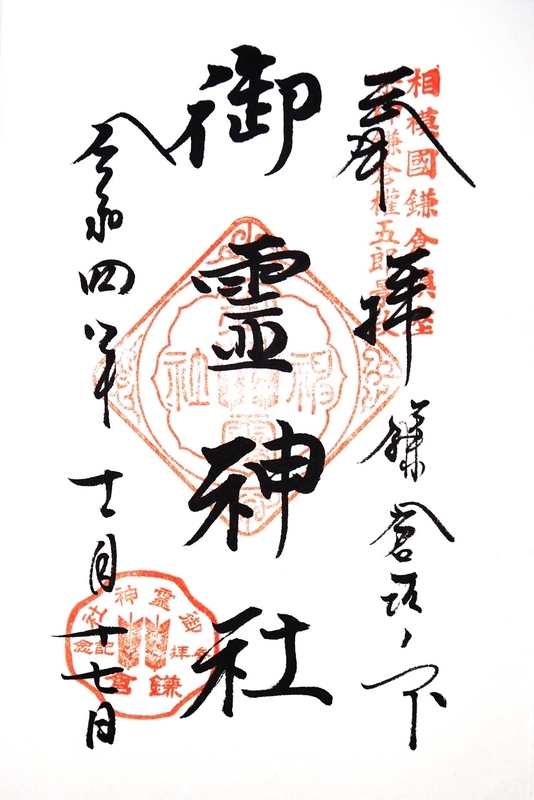 相模國鎌倉鎮座
鎌倉權五郎景政
奉拝 鎌倉坂ノ下
御靈神社
令和四年十一月十七日
御靈神社
参拝記念
鎌倉